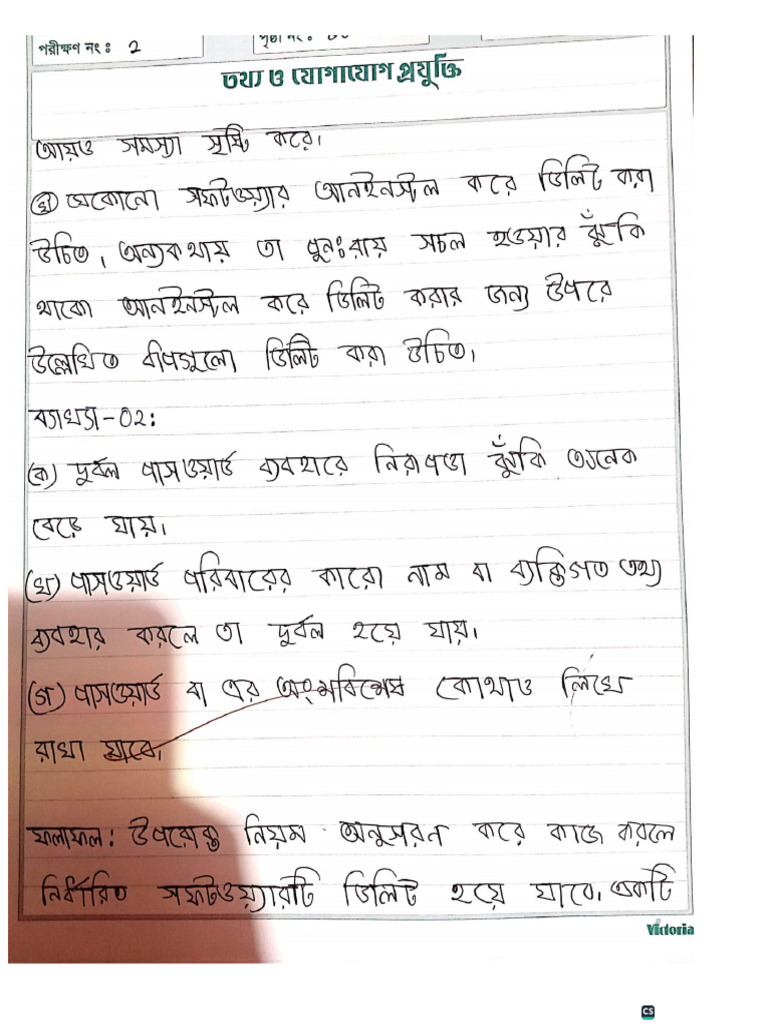 পরীক্ষণ নং : 2
পৃষ্ঠা নং :
তথ্য ও যোগাযোগ প্রযুক্তি
আরও সমস্যা সৃষ্টি করে।
যেকোনো সফটওয়্যার আনইনস্টল করে ডিলিট করা
উচিত, অন্যকথায় তা পুনঃরায় সচল হওয়ার ঝুঁকি
থাকে। আনইনস্টল করে ডিলিট করার জন্য উপরে
উল্লেখিত ধাপগুলো ডিলিট করা উচিত।
ব্যাখ্যা-০২:
(ক) দুর্বল পাসওয়ার্ড ব্যবহারে নিরাপত্তা ঝুঁকি অনেক
বেড়ে যায়।
(খ) পাসওয়ার্ড পরিবারের কারো নাম বা ব্যক্তিগত তথ্য
ব্যবহার করলে তা দুর্বল হয়ে যায়।
(গ) পাসওয়ার্ড বা এর অংশবিশেষ কোথাও লিখে
রাখা যাবে।
ফলাফল: উপরোক্ত নিয়ম অনুসরন করে কাজ করলে
নির্ধারিত সফটওয়্যারটি ডিলিট হয়ে যাবে। একটি
Victoria
CS